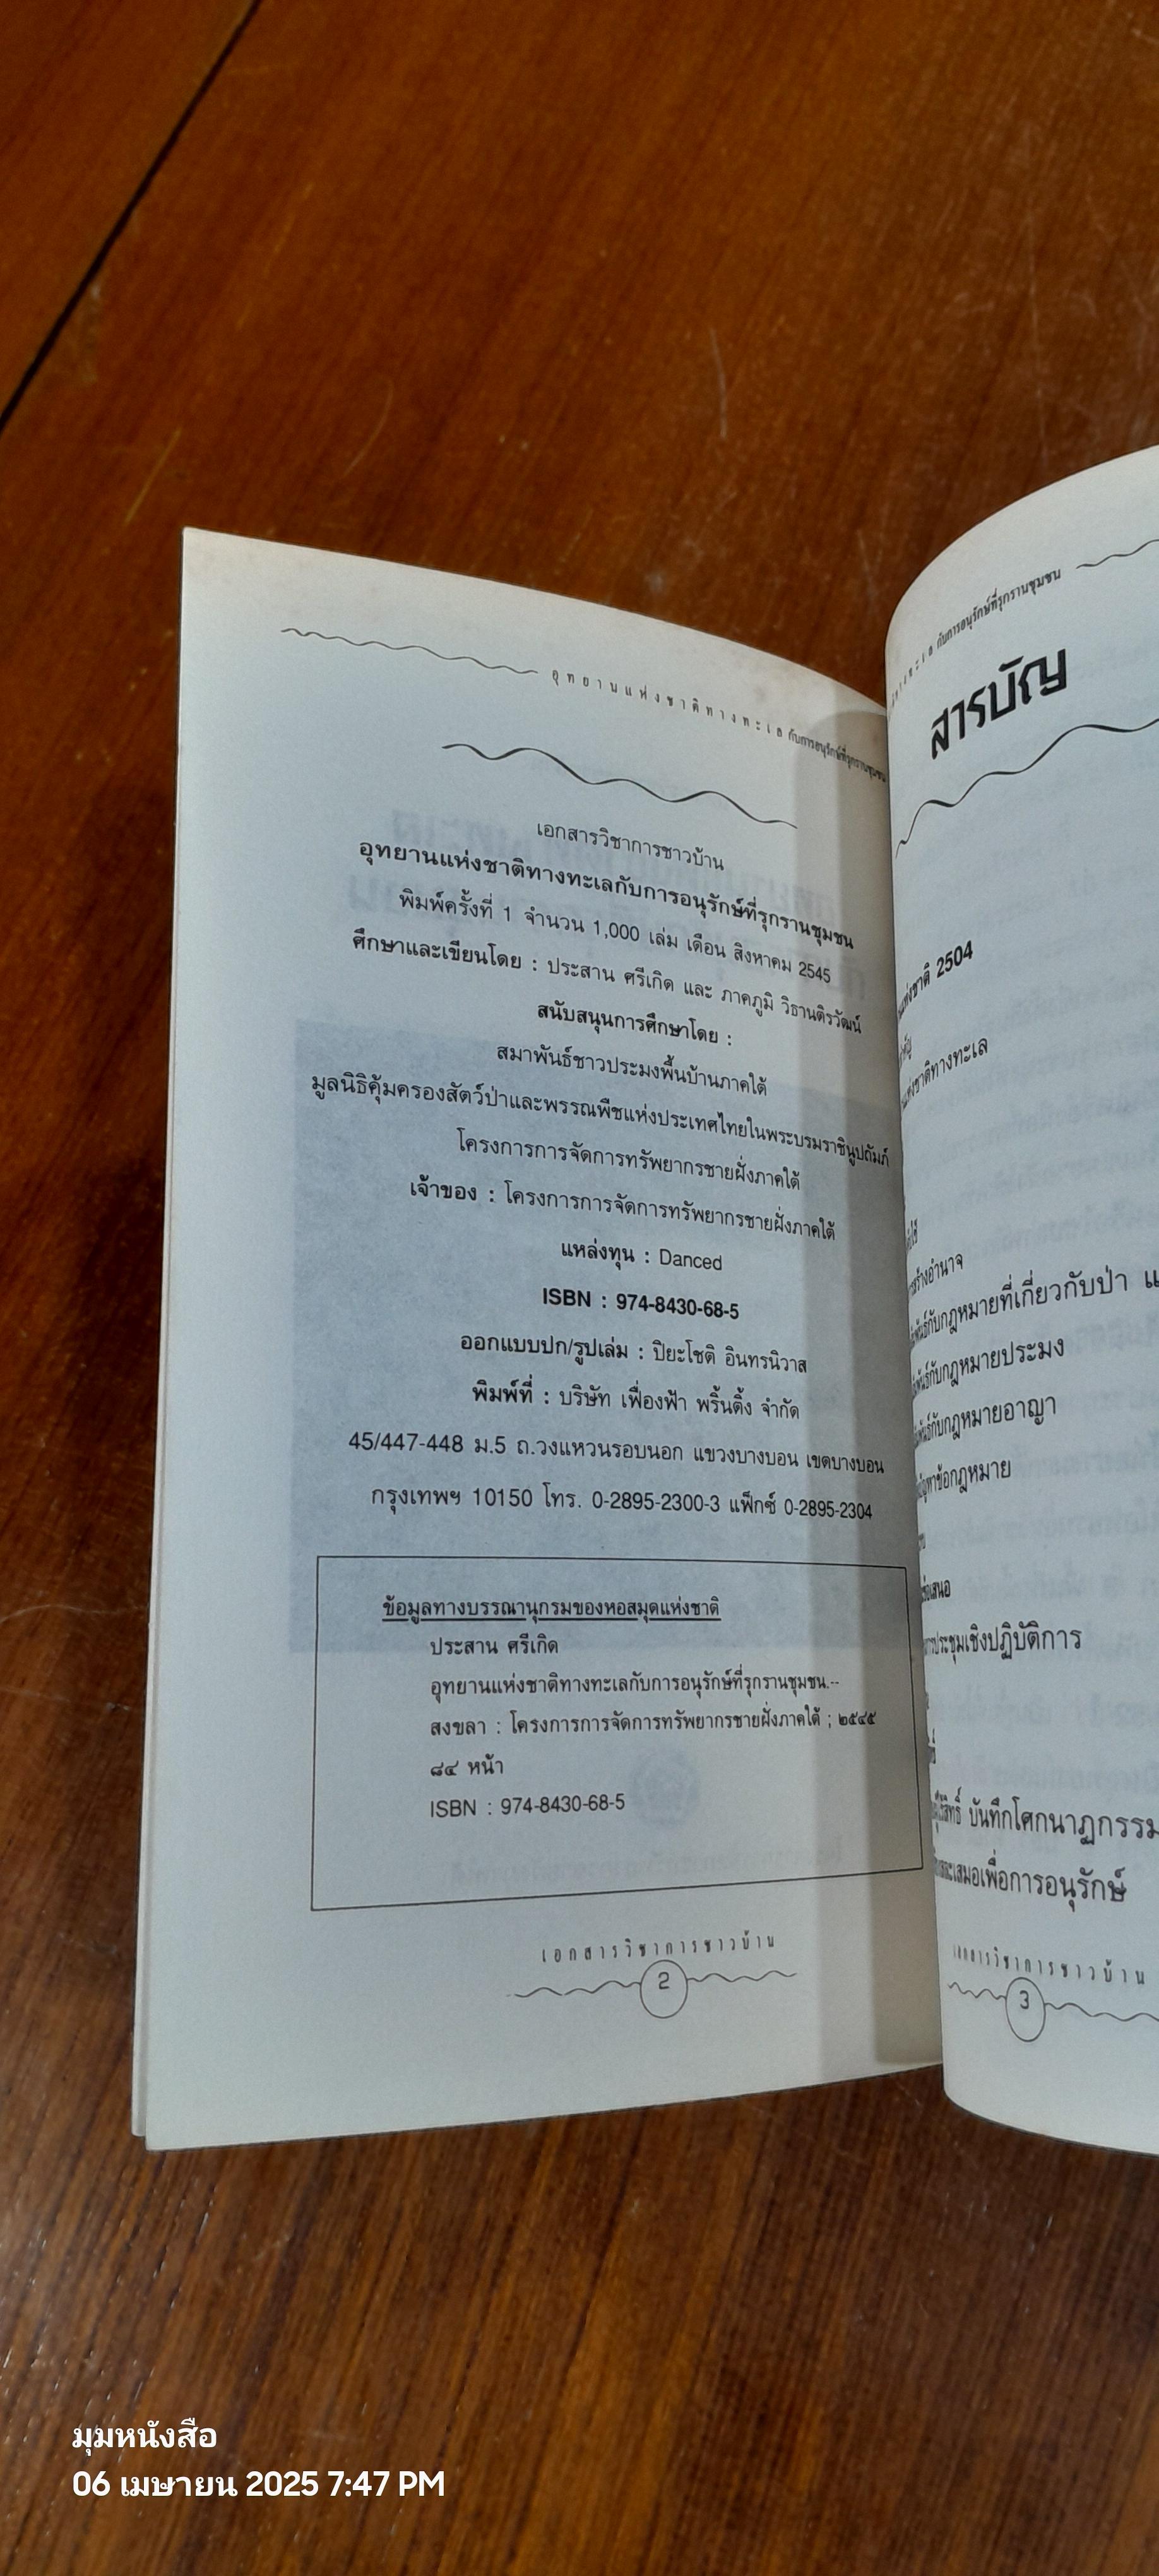 อุทยานแห่งชาติทางทะเล กับการอนุรักษ์ที่รุกรานชุมชน
เอกสารวิชาการชาวบ้าน
อุทยานแห่งชาติทางทะเลกับการอนุรักษ์ที่รุกรานชุมชน
พิมพ์ครั้งที่ 1 จำนวน 1,000 เล่ม เดือน สิงหาคม 2545
ศึกษาและเขียนโดย : ประสาน ศรีเกิด และ ภาคภูมิ วิธานติรวัฒน์
สนับสนุนการศึกษาโดย :
สมาพันธ์ชาวประมงพื้นบ้านภาคใต้
มูลนิธิคุ้มครองสัตว์ป่าและพรรณพืชแห่งประเทศไทยในพระบรมราชินูปถัมภ์
โครงการการจัดการทรัพยากรชายฝั่งภาคใต้
เจ้าของ : โครงการการจัดการทรัพยากรชายฝั่งภาคใต้
แหล่งทุน : Danced
ISBN : 974-8430-68-5
ออกแบบปก/รูปเล่ม : ปิยะโชติ อินทรนิวาส
พิมพ์ที่ : บริษัท เฟื่องฟ้า พริ้นติ้ง จำกัด
45/447-448 ม.5 ถ.วงแหวนรอบนอก แขวงบางบอน เขตบางบอน
กรุงเทพฯ 10150 โทร. 0-2895-2300-3 แฟ็กซ์ 0-2895-2304
ข้อมูลทางบรรณานุกรมของหอสมุดแห่งชาติ
ประสาน ศรีเกิด
อุทยานแห่งชาติทางทะเลกับการอนุรักษ์ที่รุกรานชุมชน.--
สงขลา : โครงการการจัดการทรัพยากรชายฝั่งภาคใต้ ; ๒๕๔๕
๘๔ หน้า
ISBN : 974-8430-68-5
เอกสารวิชาการชาวบ้าน
2
กับการอนุรักษ์ที่รุกรานชุมชน
สารบัญ
แห่งชาติ 2504
แห่งชาติทางทะเล
สร้างอำนาจ
กับกฎหมายที่เกี่ยวกับป่า
กับกฎหมายประมง
กับกฎหมายอาญา
ข้อกฎหมาย
ประชุมเชิงปฏิบัติการ
บันทึกโศกนาฏกรรม
เสมอเพื่อการอนุรักษ์
เอกสารวิชาการชาวบ้าน
3
มุมหนังสือ
06 เมษายน 2025 7:47 PM